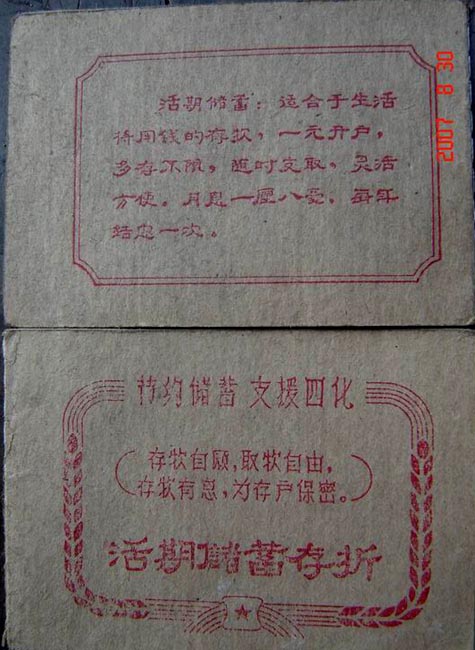 活期储蓄：适合于生活
待用钱的存款，一元开户，
多存不限，随时支取，灵活
方便。月息一厘八毫，每年
结息一次。
2007 8 30
节约储蓄 支援四化
存款自愿，取款自由，
存款有息，为存户保密。
活期储蓄存折